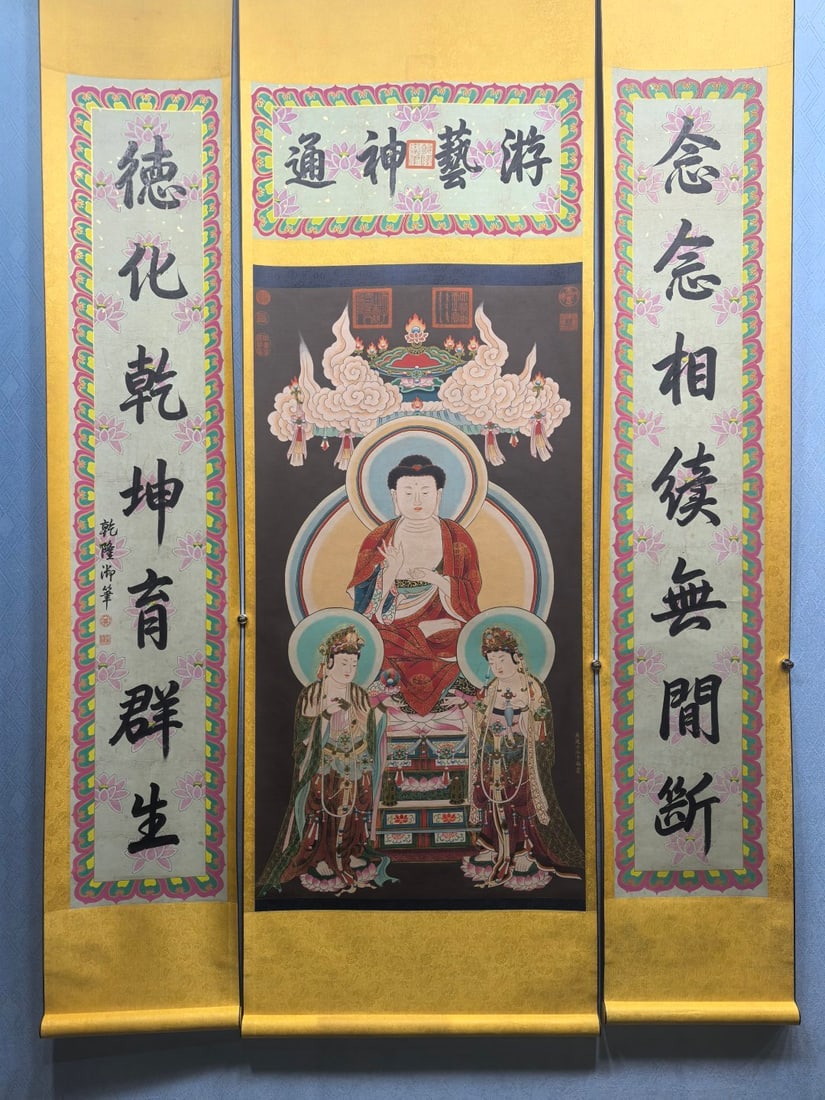 游藝神通
念念相續無間斷
德化乾坤育群生
乾隆御筆